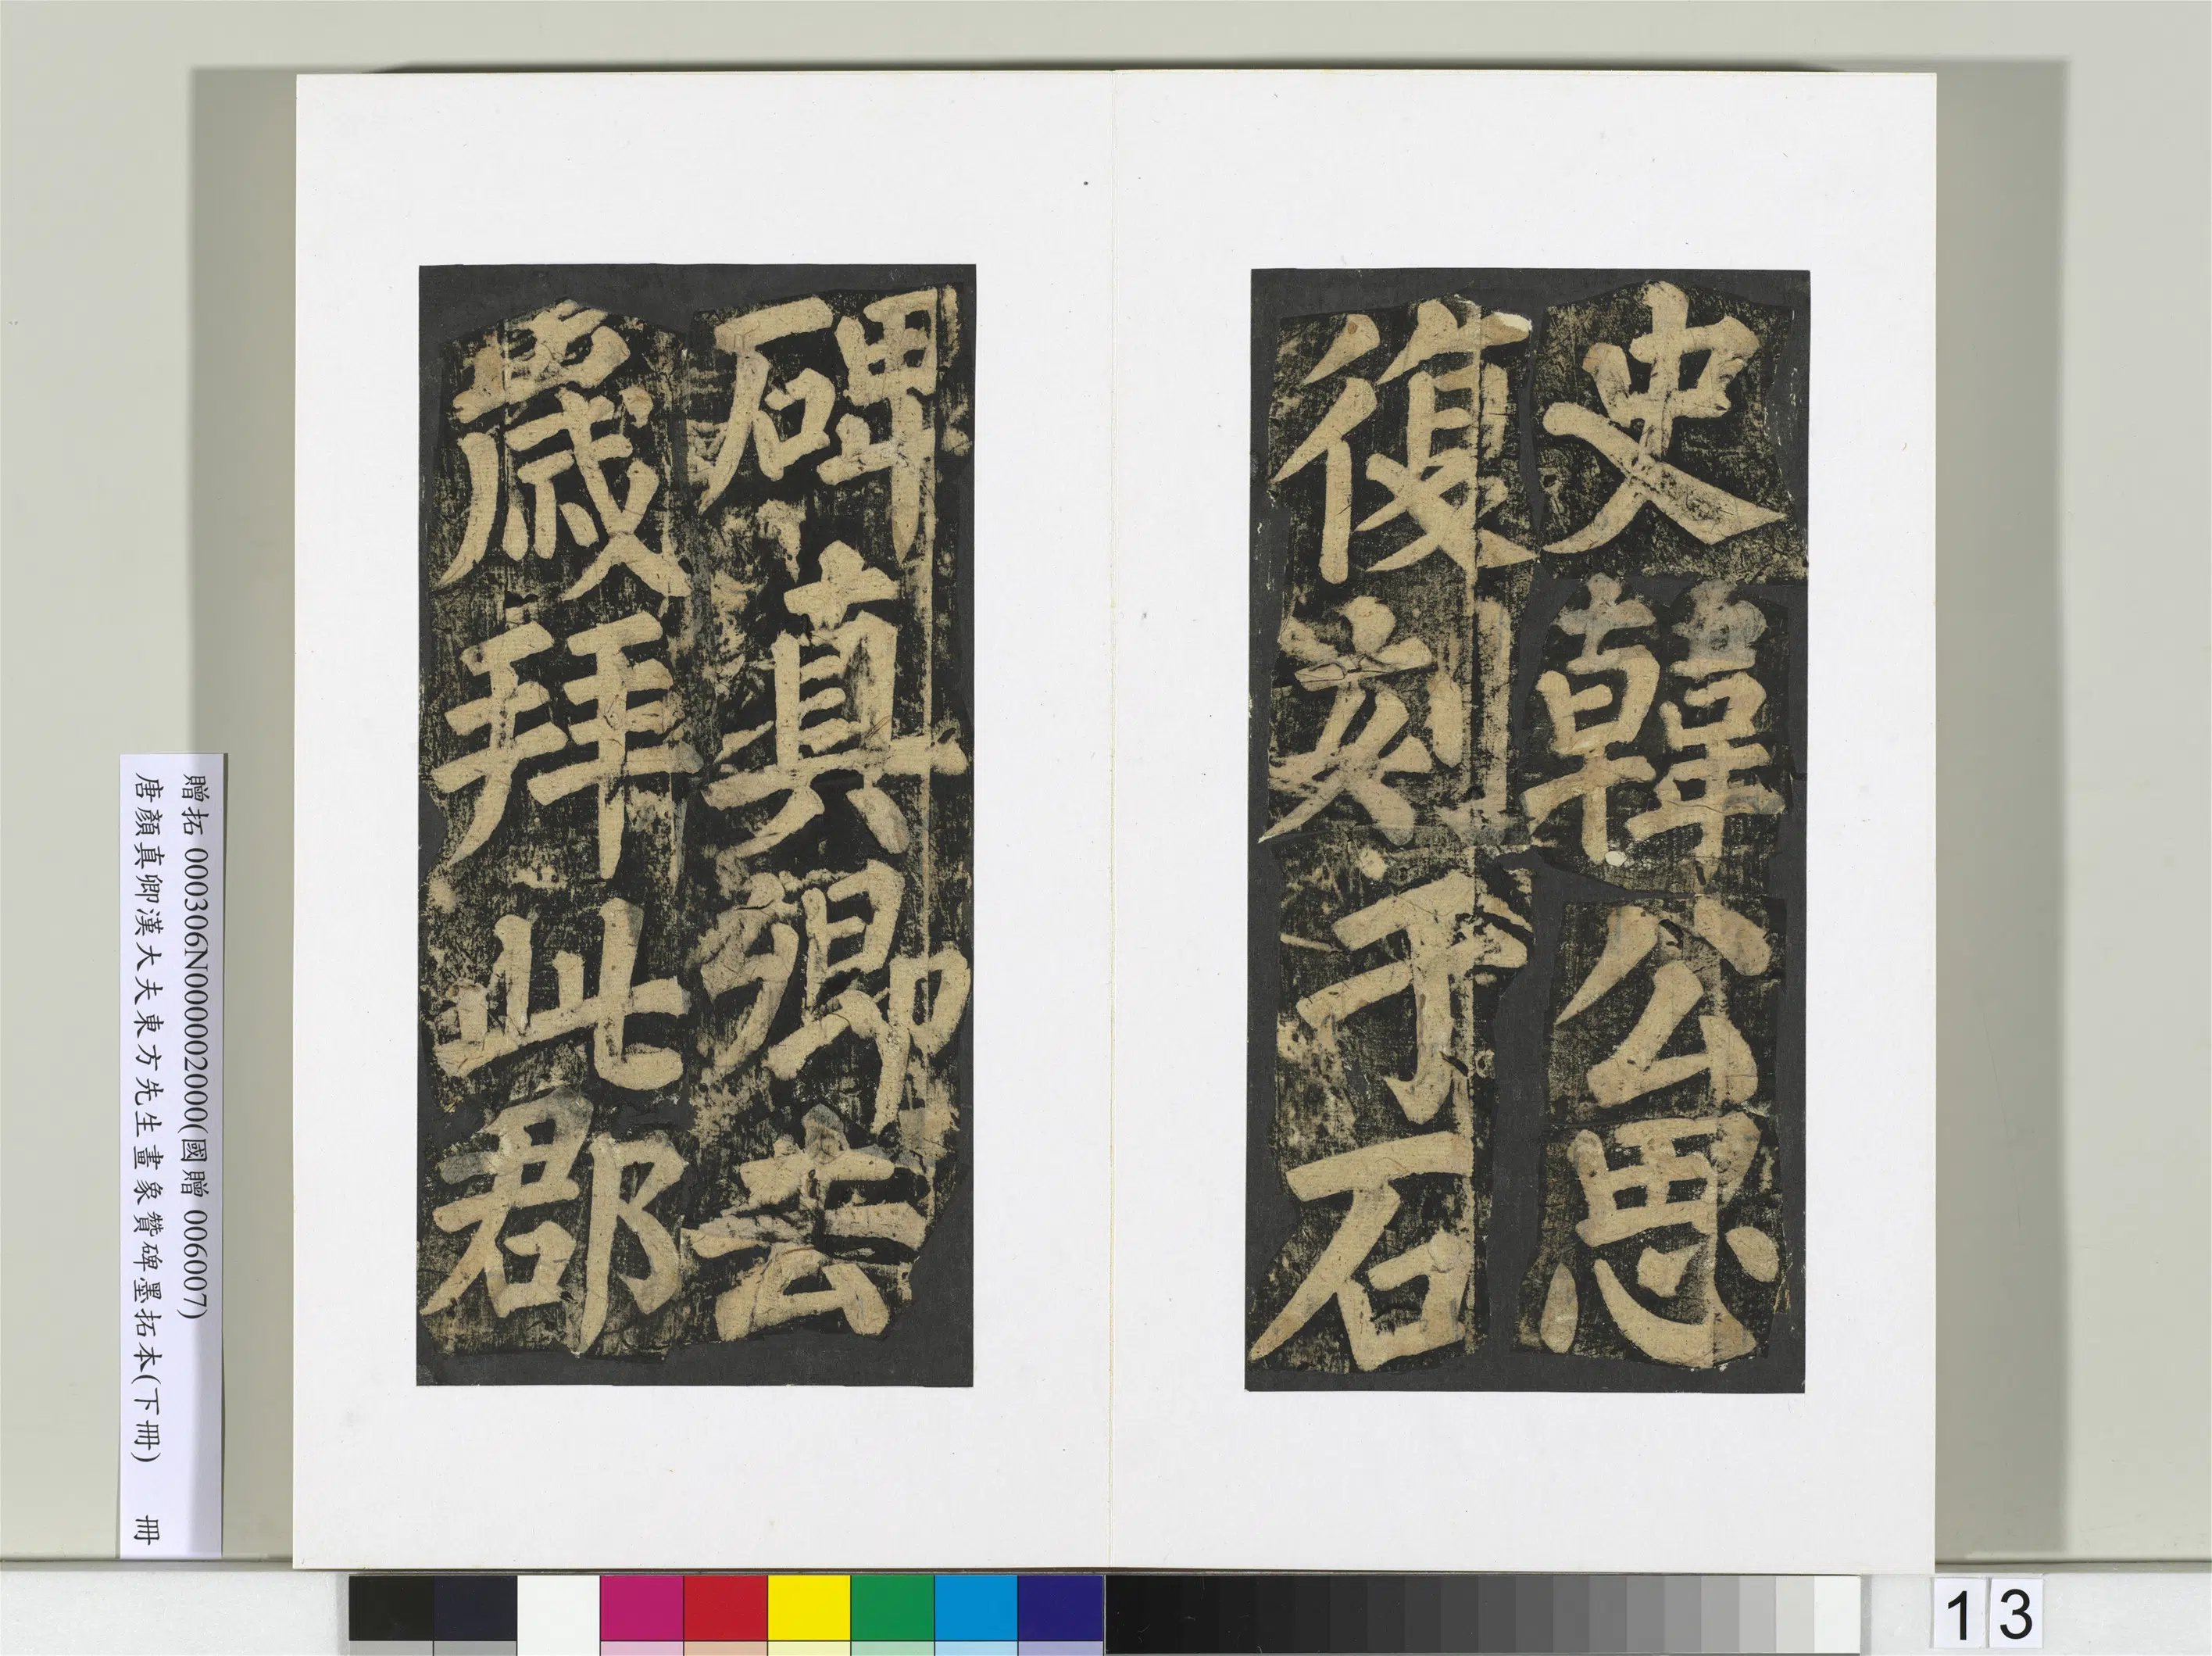 史韓公思
復刻于石
碑真卿去
歳拜此郡
贈拓 000306N000002000(國贈 006007)
唐顏真卿漢大夫東方先生畫象贊碑墨拓本(下冊) 冊
13